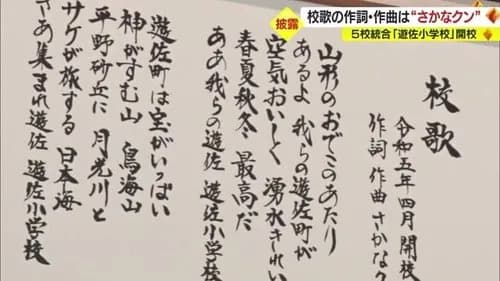 披露
校歌の作詞・作曲は“さかなクン”
5校統合「遊佐小学校」開校
校歌
令和五年四月開校
作詞 作曲 さかなク
山形のおでこのあたり
あるよ 我らの遊佐町が
空気おいしく 湧水きれい
春夏秋冬 最高だ
ああ我らの遊佐 遊佐小学校
遊佐町は宝がいっぱい
神がすむ山 鳥海山
平野砂丘に 月光川と
サケが旅する 日本海
さあ集まれ遊佐 遊佐小学校